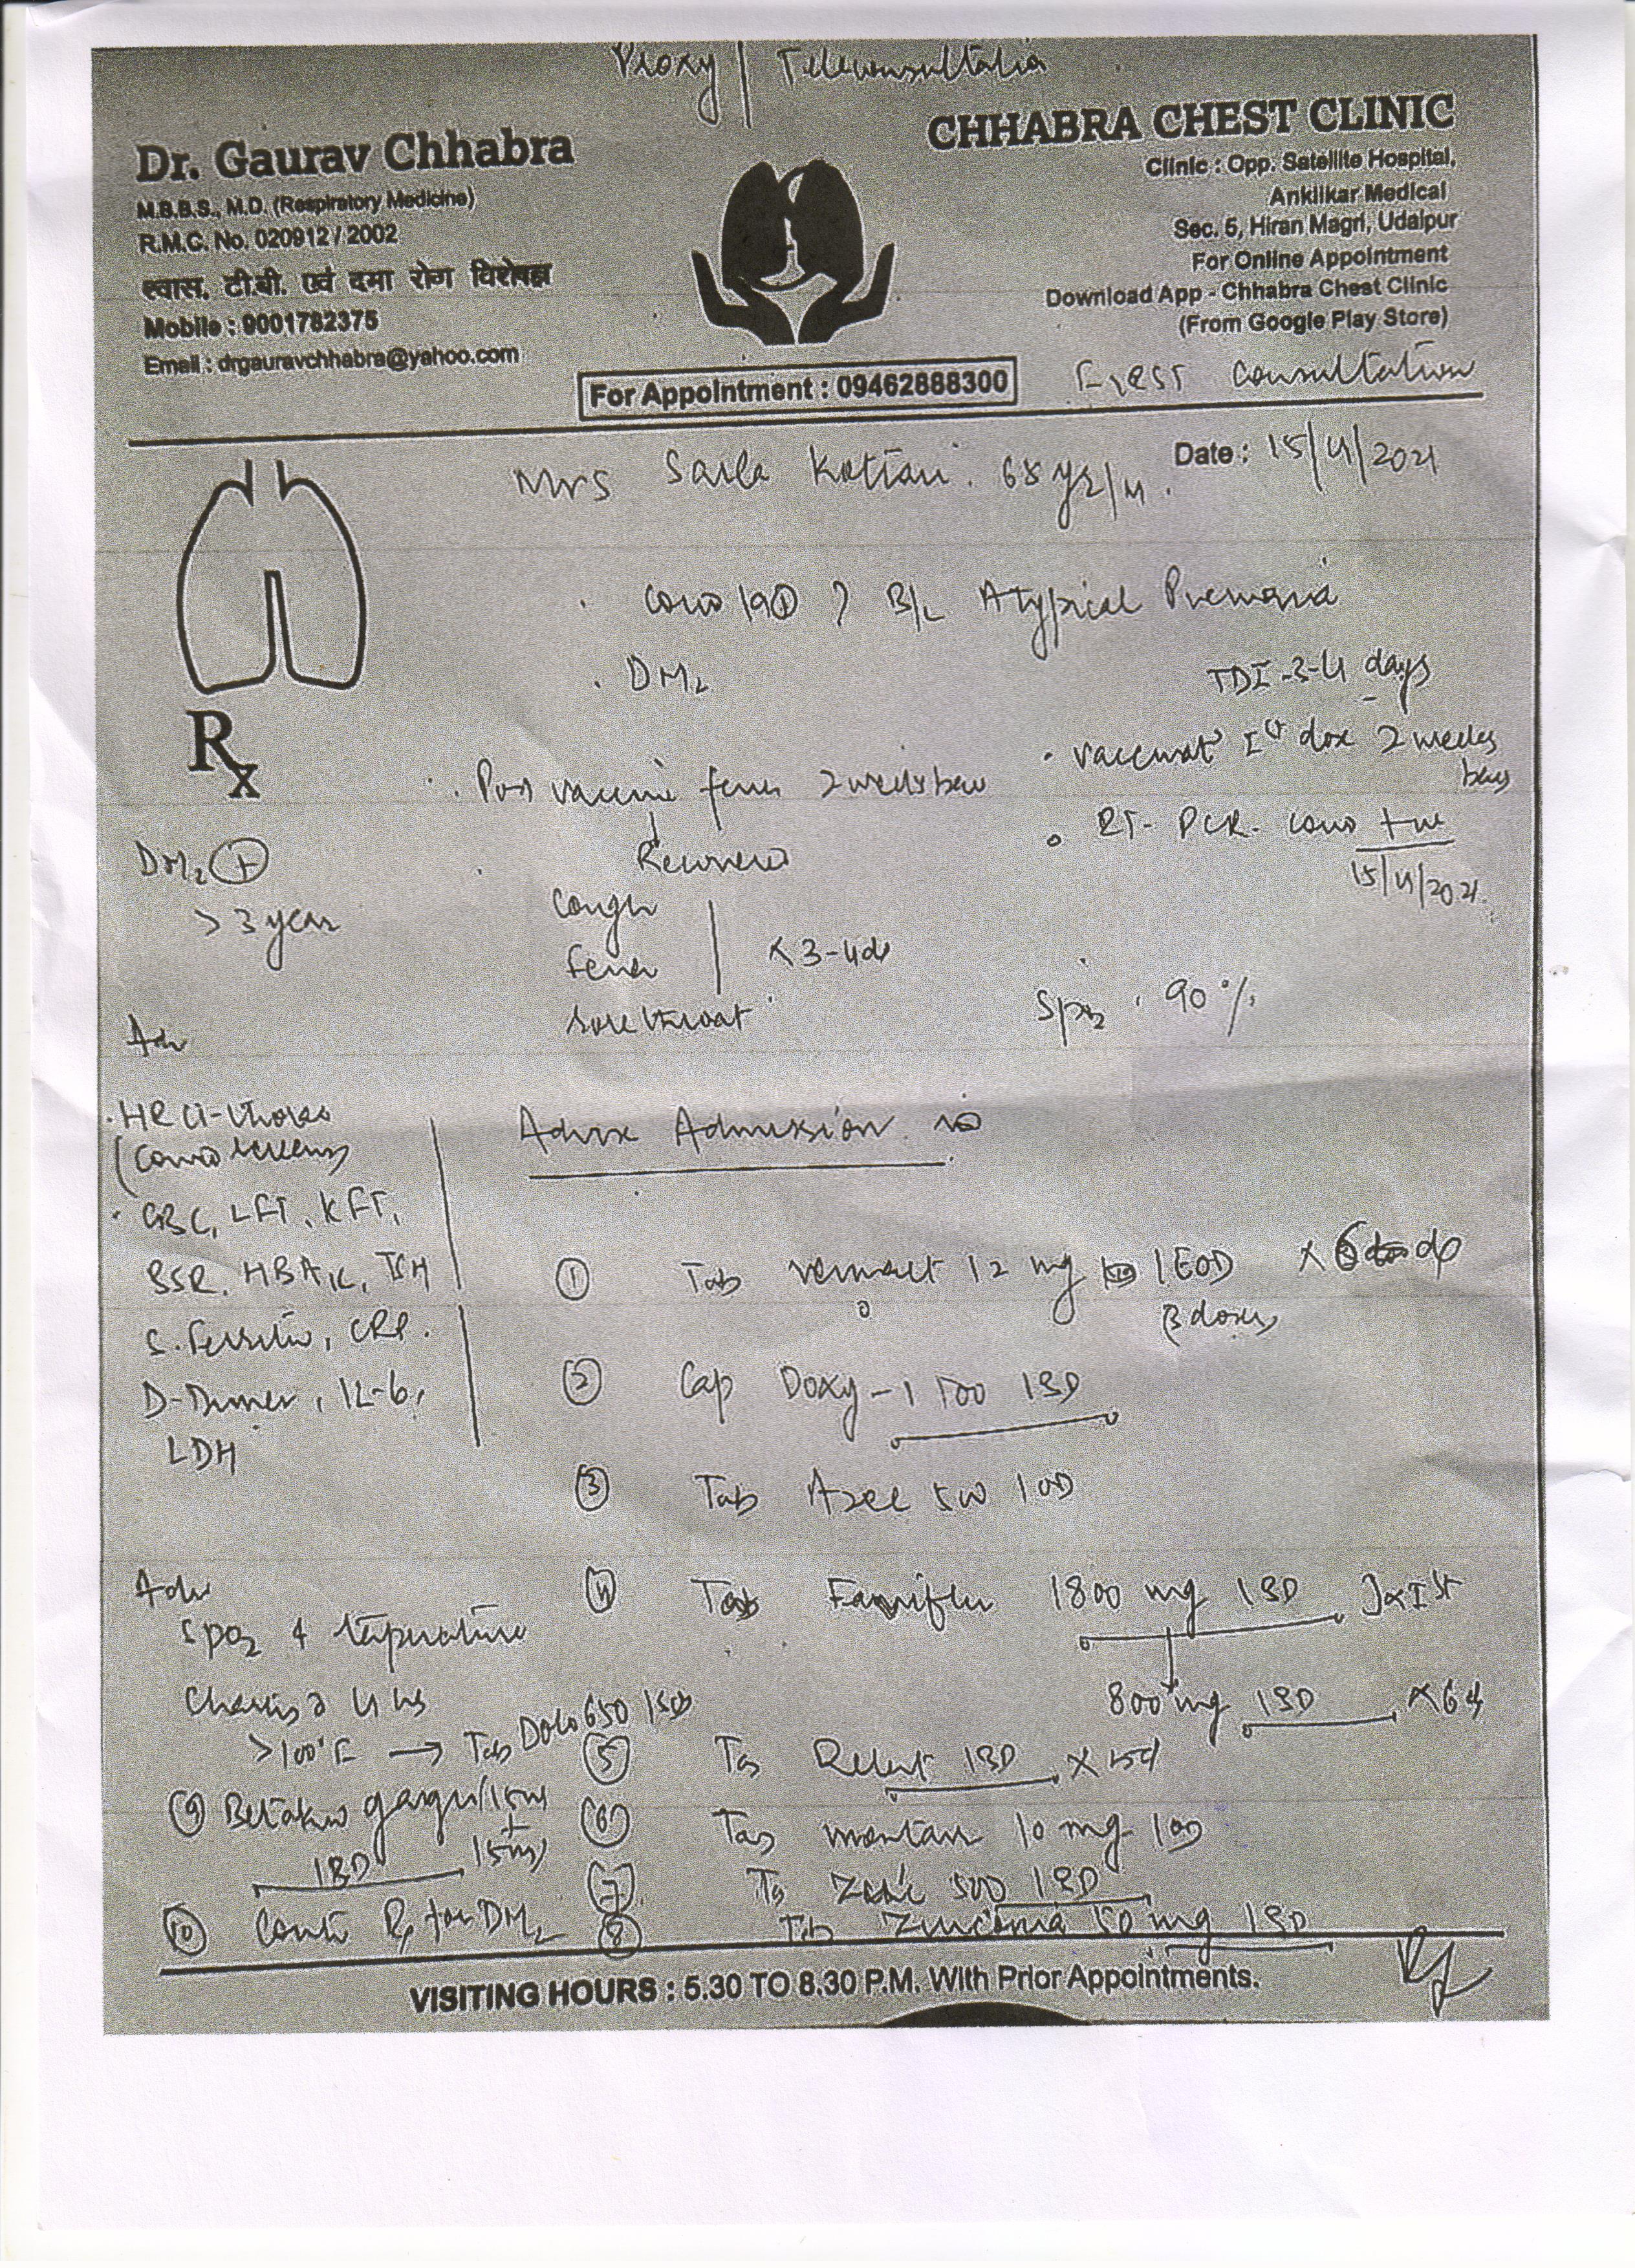 Proxy / Teleconsultatia
Dr. Gaurav Chhabra
M.B.B.S., M.D. (Respiratory Medicine)
R.M.C. No. 020912 / 2002
श्वास, टी.बी. एवं दमा रोग विशेषज्ञ
Mobile : 9001782375
Email : drgauravchhabra@yahoo.com
CHHABRA CHEST CLINIC
Clinic : Opp. Satellite Hospital,
Anklikar Medical
Sec. 5, Hiran Magri, Udaipur
For Online Appointment
Download App - Chhabra Chest Clinic
(From Google Play Store)
For Appointment : 09462888300
First Consultation
Date : 15/4/2021
Mrs Sarla 68 yr/
Covid 19 ⊕ ? B/L Atypical Pnemonia
DM2
TDI - 3-4 days
Vaccinat Ist dose 2 weeks back
Post vaccine fever 2 weeks back
↓
Recovered
RT-PCR- Covid +ve
15/4/2021
Rx
DM2 ⊕
> 3 year
Cough
fever × 3-4d
sore throat
SpO2 . 90 %
Adv
. HRCT-thorax
(Covid screening
. CBC, LFT, KFT,
BSR, HBA1c, TSH
S. Ferritin, CRP.
D-Dimer, IL-6,
LDH
Advise Admission
① Tab 12 mg 1EOD ×
3 doses
② Cap Doxy-1 100 1BD
③ Tab Azee 500 1OD
④ Tab 1800 mg 1BD D×Ist
↓
800 mg 1BD × 6d
⑤ Tab Relent 1BD × 15d
⑥ Tab 10 mg 1OD
⑦ Tab 500 1BD
⑧ Tab Zinconia 50 mg 1BD
Adv
SpO2 & temperature
Charting 4 hrs
>100°F → Tab Dolo 650 1SOS
⑨ Betadine gargle (15ml
+
15ml)
1BD
⑩ Conti Rx for DM2
VISITING HOURS : 5.30 TO 8.30 P.M. With Prior Appointments.